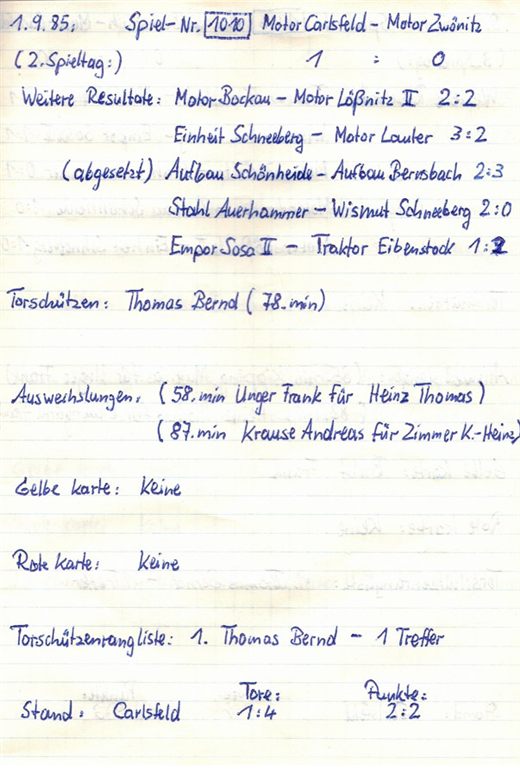 1.9.85: Spiel-Nr. 1010 Motor Carlsfeld - Motor Zwönitz
(2. Spieltag:) 1 : 0
Weitere Resultate: Motor Bockau - Motor Lößnitz II 2:2
Einheit Schneeberg - Motor Lauter 3:2
(abgesetzt) Aufbau Schönheide - Aufbau Bernsbach 2:3
Stahl Auerhammer - Wismut Schneeberg 2:0
Empor Sosa II - Traktor Eibenstock 1:2
Torschützen: Thomas Bernd (78.min)
Auswechslungen: (58.min Unger Frank für Heinz Thomas)
(87.min Krause Andreas für Zimmer K.-Heinz)
Gelbe Karte: Keine
Rote Karte: Keine
Torschützenrangliste: 1. Thomas Bernd - 1 Treffer
Tore: Punkte:
Stand: Carlsfeld 1:4 2:2